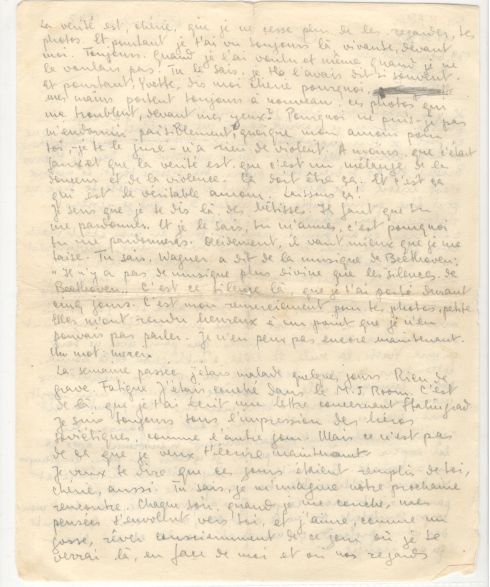 La vérité est, chérie, que je ne cesse plus de les regarder, tes
photos. Et pourtant je t'ai vu toujours là, vivante, devant
moi. Toujours. Quand je l'ai voulu et même quand je ne
le voulais pas, tu le sais, je te l'avais dit si souvent.
Et pourtant, Yvette, dis moi chérie pourquoi
mes mains portent toujours à nouveau, ces photos qui
me troublent, devant mes yeux? Pourquoi ne puis-je pas
m'endormir paisiblement, quoique mon amour pour
toi - je te le jure - n'a rien de violent. A moins que c'était
faux et que la vérité est que c'est un mélange de la
douceur et de la violence. Ça doit être ça. Et c'est ça
qui est le véritable amour. Laissons ça!
Je sens que je te dis là, des bêtises. Il faut que tu
me pardonnes. Et je le sais, tu m'aimes, c'est pourquoi
tu me pardonneras. Décidement, il vaut mieux que je me
taise. Tu sais, Wagner a dit de la musique de Beethoven:
"Il n'y a pas de musique plus divine que les silences de
Beethoven". C'est ce silence là, que je t'ai porté durant
cinq jours. C'est mon remerciement pour tes photos, petite.
Elles m'ont rendu heureux à un point que je n'en
pouvais pas parler. Je n'en peux pas encore maintenant.
Un mot: merci.
La semaine passée j'étais malade quelques jours. Rien de
grave. Fatigue. J'étais couché dans le M.J. Room. C'est
de là, que je t'ai écrit une lettre concernant Stalingrad
Je suis toujours sous l'impression des héros
soviétiques, comme l'autre jour. Mais ce n'est pas
de ça que je veux t'écrire maintenant
Je veux te dire que ces jours étaient remplis de toi,
chérie, aussi. Tu sais, je m'imagine notre prochaine
rencontre. Chaque soir, quand je me couche, mes
pensées s'envolent vers toi, et j'aime, comme un
gosse, rêver consciemment de ce jour où je te
verrai là, en face de moi et où nos regards